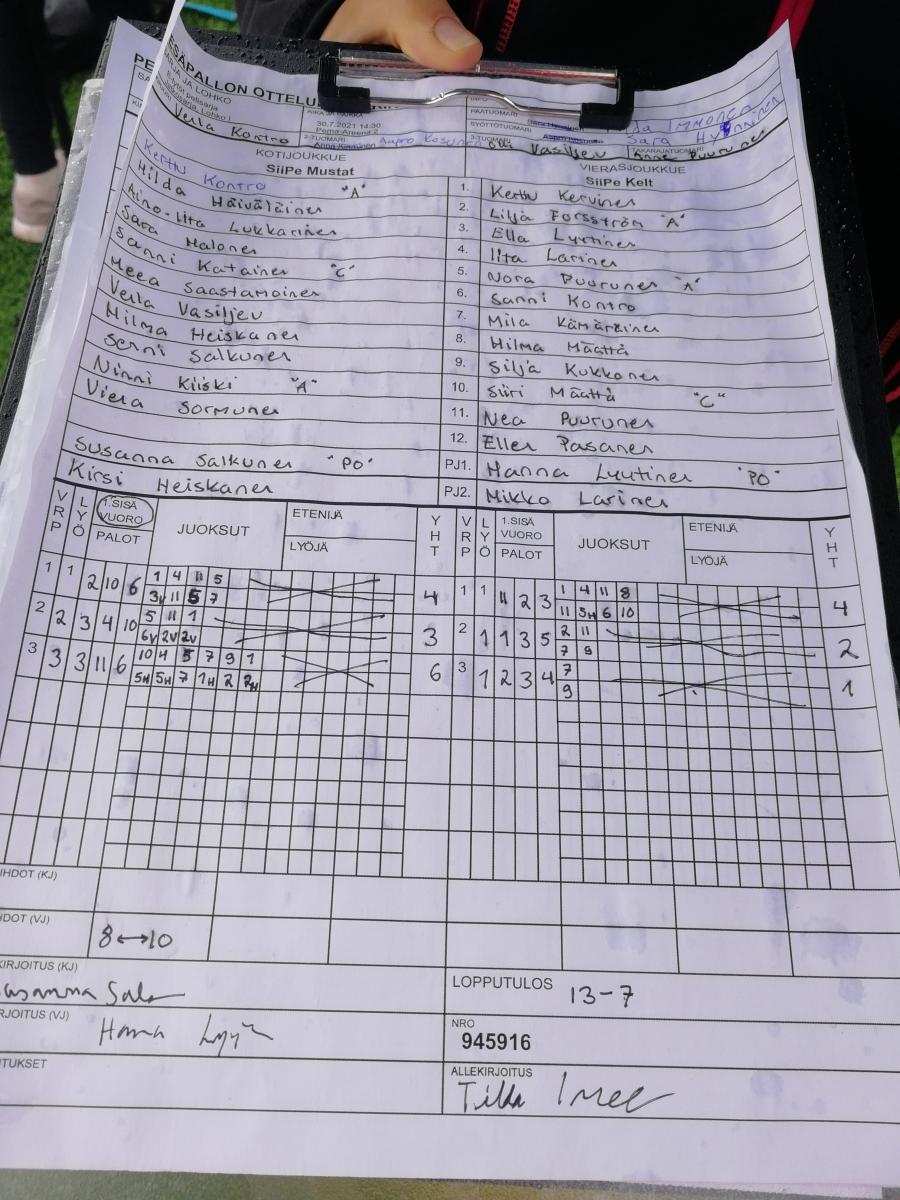 PESÄPALLON OTTELU
SARJA JA LOHKO
AIKA JA PAIKKA
30.7.2021 14:30
Pema-Areena 2
INFO
PÄÄTUOMARI
SYÖTTÖTUOMARI
Sara Hynninen
Vella Kontro
2-TUOMARI
Aapro Kosunen
3-TUOMARI
Vasiljev
TAKARAJATUOMARI
Anne Puurunen
KOTIJOUKKUE
SiiPe Mustat
VIERASJOUKKUE
SiiPe Kelt
Kerttu Kontro 1. Kerttu Kervinen
Hilda Häiväläinen "A" 2. Lilja Forsström "A"
Aino-Iita Lukkarinen 3. Ella Lyytinen
Sara Malonen 4. Iita Larinen
Sanni Katainen "C" 5. Nora Puurunen "A"
Meea Saastamoinen 6. Sanni Kontro
Vella Vasiljev 7. Mila Kämäräinen
Hilma Heiskanen 8. Hilma Määttä
Senni Salkunen 9. Silja Kukkonen
Ninni Kiiski "A" 10. Siiri Määttä "C"
Viera Sormunen 11. Nea Puurunen
12. Ellen Pasanen
Susanna Salkunen "PO" PJ1. Hanna Lyytinen "PO"
Kirsi Heiskanen PJ2. Mikko Larinen
VRP LYÖ 1.SISÄ VUORO PALOT JUOKSUT ETENIJÄ LYÖJÄ YHT VRP LYÖ 1.SISÄ VUORO PALOT JUOKSUT ETENIJÄ LYÖJÄ YHT
1 1 2 10 6 1 4 11 5 4 1 1 11 2 3 1 4 11 8 4
3v 11 5 7 11 5H 6 10
2 2 3 4 10 5 11 1 3 2 1 1 3 5 2 11 2
6v 2v 2v 7 9
3 3 3 11 6 10 4 5 7 9 1 6 3 1 2 3 4 7 1
5H 5H 7 1H 2 2H 9
IHDOT (KJ)
DOT (VJ)
8 ↔ 10
KIRJOITUS (KJ)
LOPPUTULOS 13-7
RJOITUS (VJ)
NRO
945916
TUKSET
ALLEKIRJOITUS
Tilda